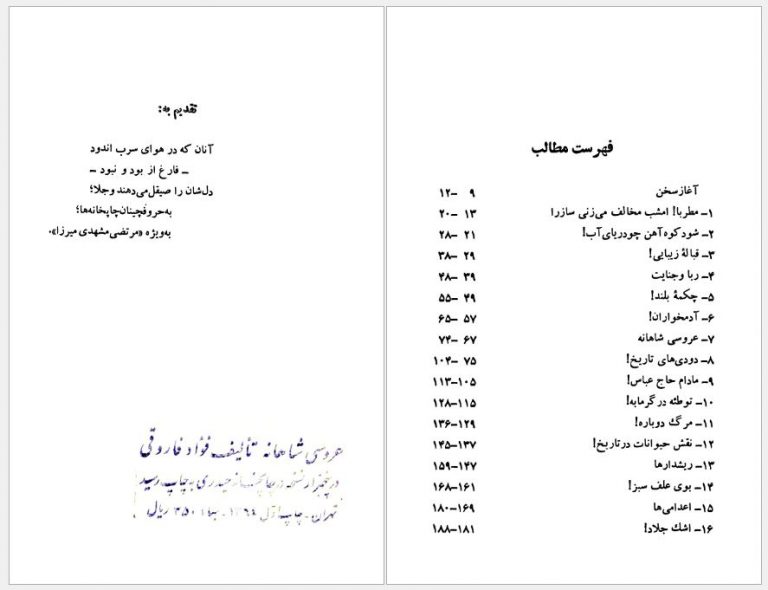 فهرست مطالب
آغاز سخن ۹ –۱۲
۱– مطربا! امشب مخالف می‌زنی ساز را ۱۳ –۲۰
۲– شود کوه آهن چو دریای آب! ۲۱ –۲۸
۳– قبالهٔ زیبایی! ۲۹ –۳۸
۴– ربا و جنایت ۳۹ –۴۸
۵– چکمهٔ بلند! ۴۹ –۵۵
۶– آدمخواران! ۵۷ –۶۵
۷– عروسی شاهانه ۶۷ –۷۴
۸– دودی‌های تاریخ! ۷۵ –۱۰۴
۹– مادام حاج عباس! ۱۰۵–۱۱۳
۱۰– توطئه در گرمابه! ۱۱۵–۱۲۸
۱۱– مرگ دوباره! ۱۲۹–۱۳۶
۱۲– نقش حیوانات در تاریخ! ۱۳۷–۱۴۵
۱۳– ریشدارها ۱۴۷–۱۵۹
۱۴– بوی علف سبز! ۱۶۱–۱۶۸
۱۵– اعدامی‌ها ۱۶۹–۱۸۰
۱۶– اشک جلاد! ۱۸۱–۱۸۸
تقدیم به:
آنان که در هوای سرب اندود
– فارغ از بود و نبود –
دل‌شان را صیقل می‌دهند و جلا؛
به حروفچینان چاپخانه‌ها؛
به‌ویژه «مرتضی مشهدی میرزا».
عروسی شاهانه تألیف فؤاد فاروقی
در پنجهزار نسخه در چاپخانه حیدری به چاپ رسید
تهران - چاپ اول ریال